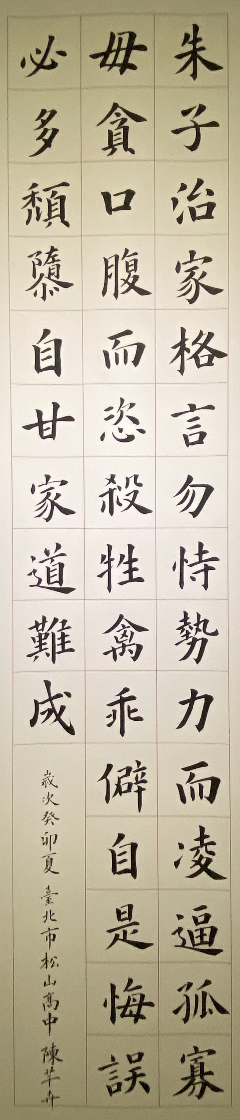 朱子治家格言勿恃勢力而凌逼孤寡
毋貪口腹而恣殺牲禽乖僻自是悔誤
必多頹隳自甘家道難成
歲次癸卯夏 臺北市松山高中 陳芊卉